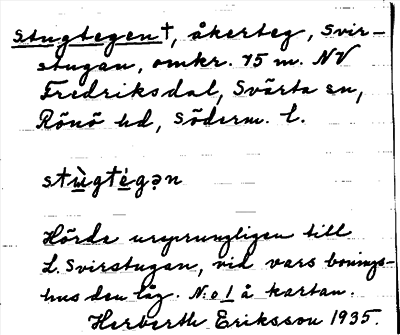 Stugtegen†, åkerteg, Svir-
stugan, omkr. 75 m. NV
Fredriksdal, Svärta sn,
Rönö hd, Söderm. l.
stù̱gté̱gən
Hörde ursprungligen till
L. Svirstugan, vid vars bonings-
hus den låg. N:o 1 å kartan.
Herberth Eriksson 1935.